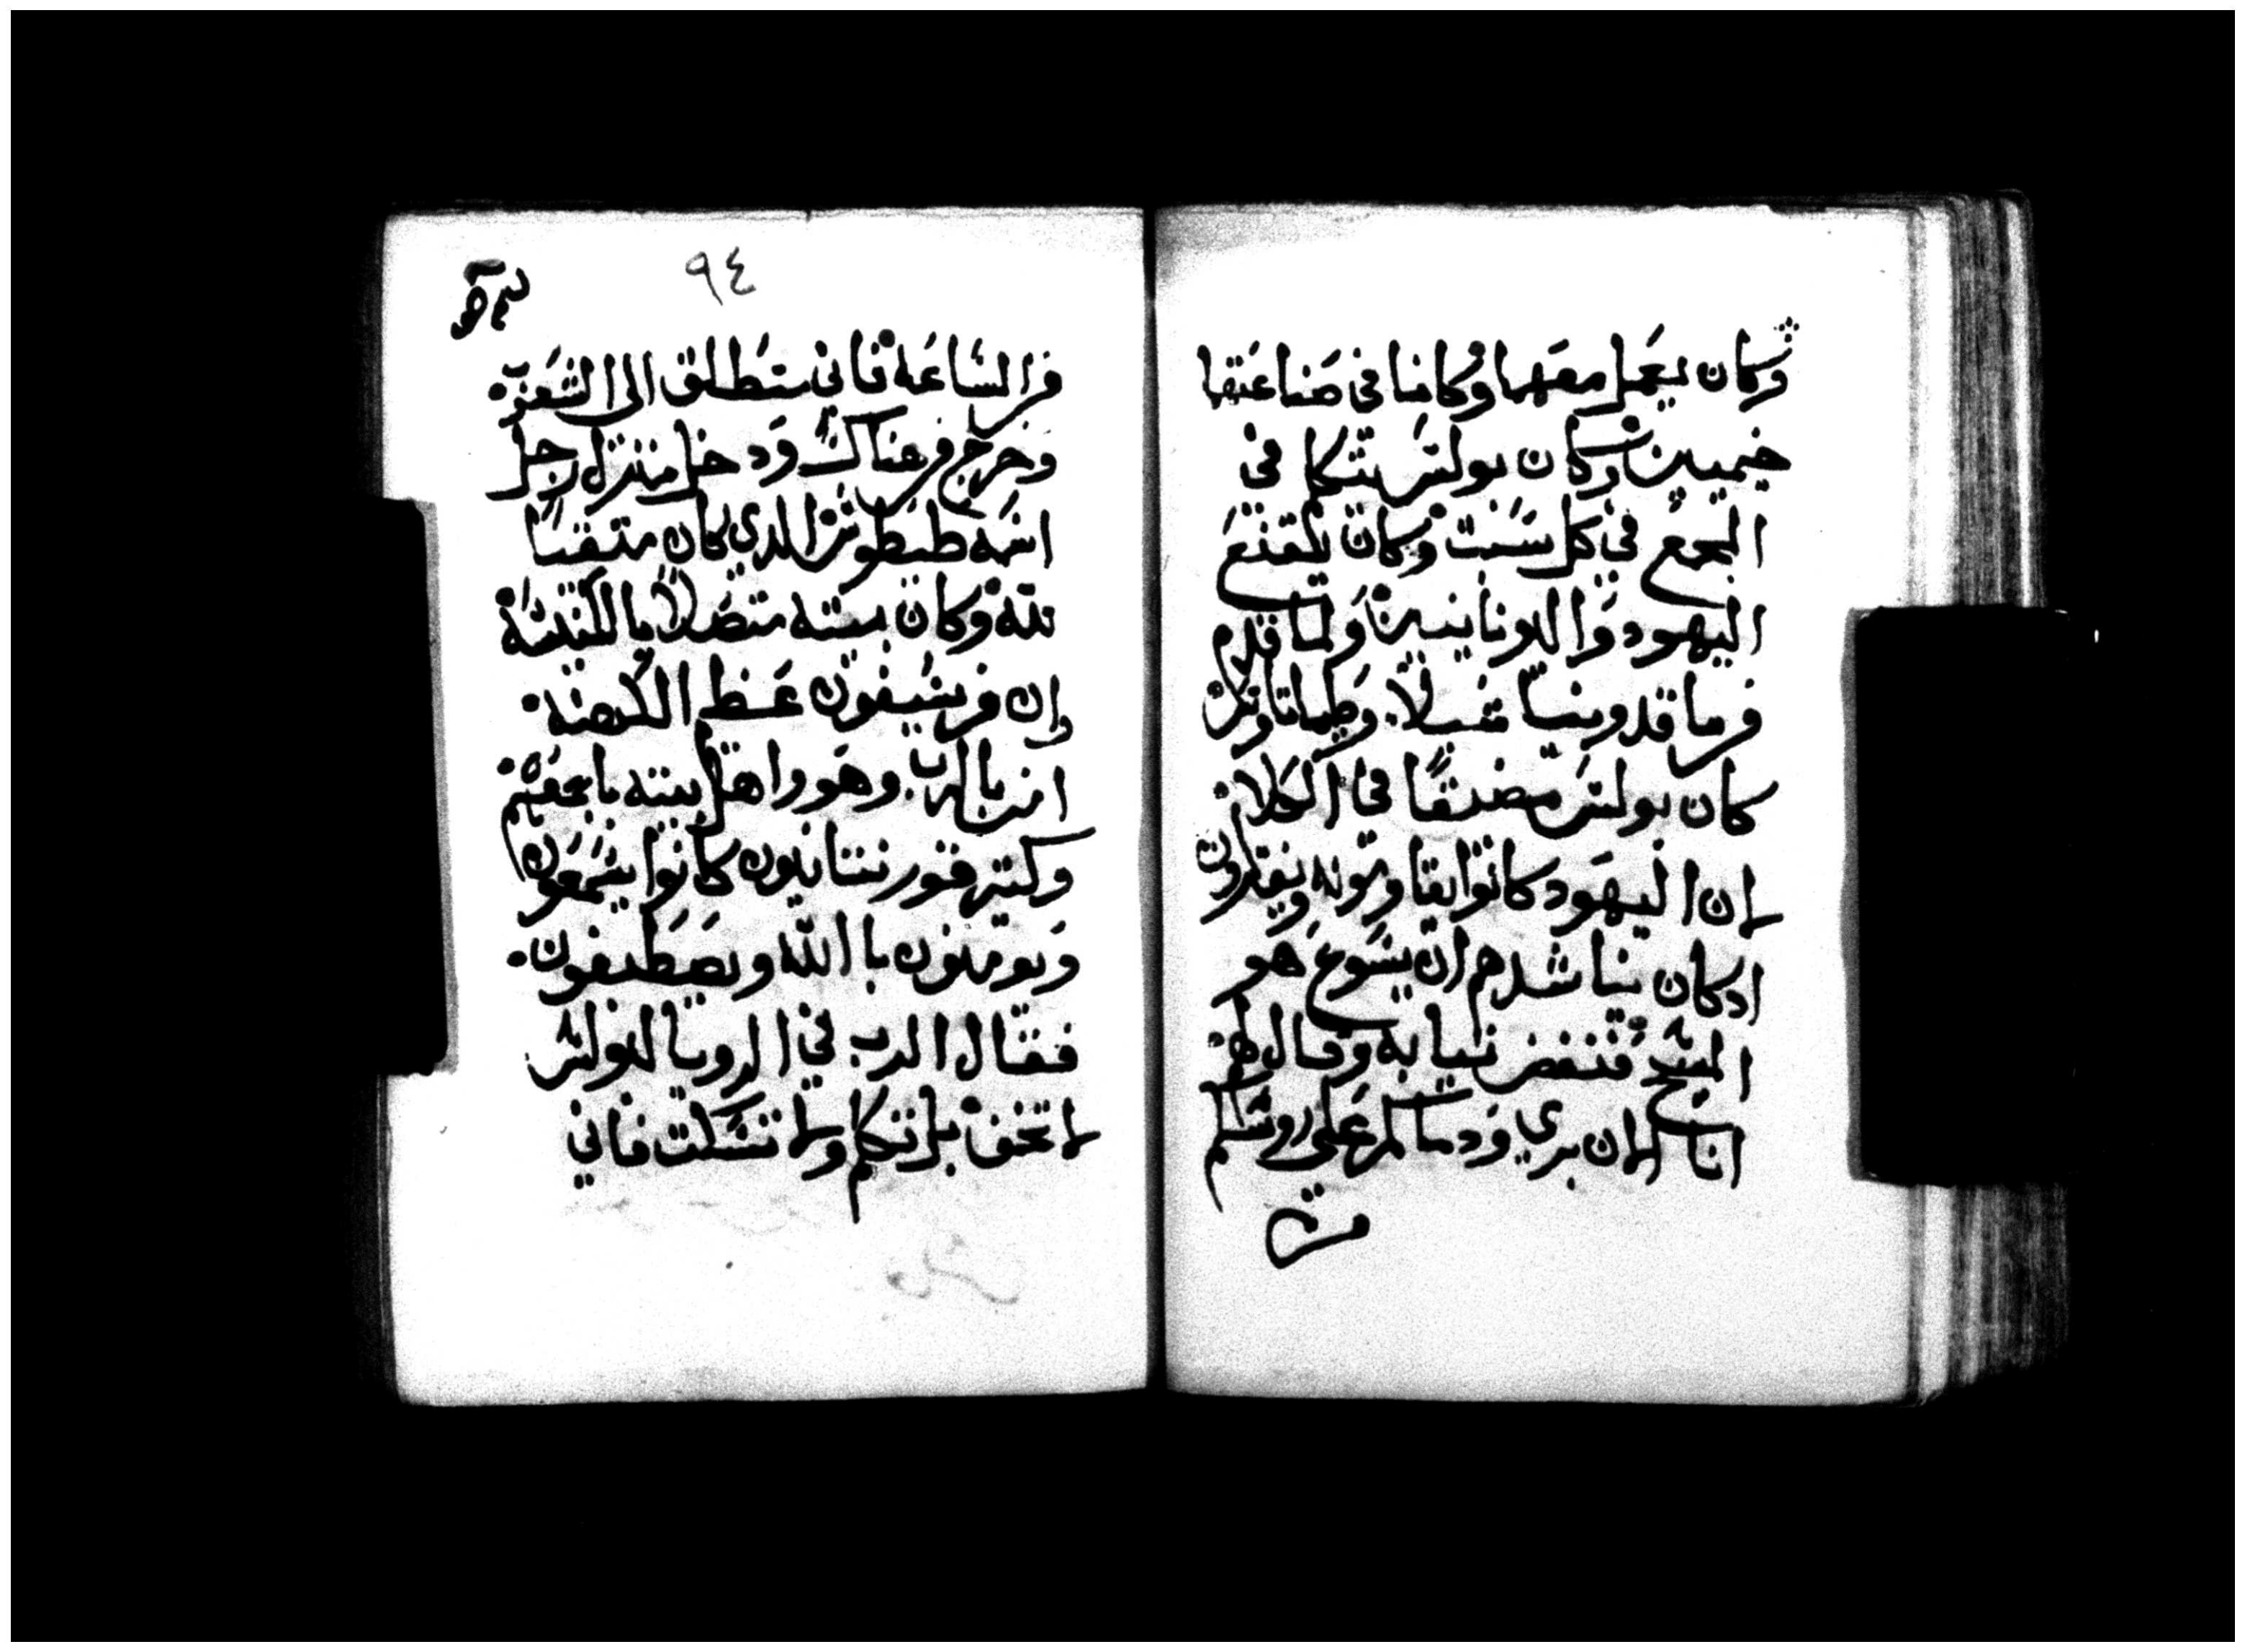 وكان يعمل معهما وكانا في صناعتهما
خيميين وكان بولس يتكلم في
المجمع في كل سبت وكان يقنع
اليهود واليونانيين ولما قدم
من ماقدونيا سيلا وطيماتاوس
كان بولس مضيقا في الكلام
لان اليهود كانوا يقاومونه ويفترون
ادكان يناشدهم ان يسوع هو
المسيح فنفض ثيابه وقال لهم
انا الان بري ودماكم علي روسكم
من
٩٤
من الساعة فاني منطلق الى الشعوب
وخرج من هناك ودخل منزل رجل
اسمه طيطوس الدي كان متقيا
لله وكان بيته متصلا بالكنيسة
وان قريسيفون عظيم الكهنة
امن بالرب وهو واهل بيته باجمعهم
وكتير قورنتانيون كانوا يسمعون
ويومنون با الله ويصطبغون
فقال الرب في الرويا لبولس
لا تخف بل تكلم ولا تسكت فاني